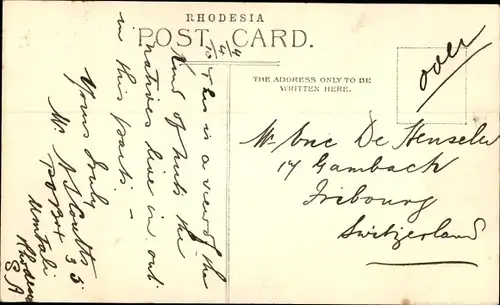 RHODESIA
POST CARD.
THE ADDRESS ONLY TO BE
WRITTEN HERE.
over
4/4/10
This is a view of the
kind of huts the
natives live in out
in this parts —
Yours truly
Mr. A S Coutts
PO Box 35
Umtali
Rhodesia
S A
Mr De Henseler
17 Gambach
Fribourg
Switzerland